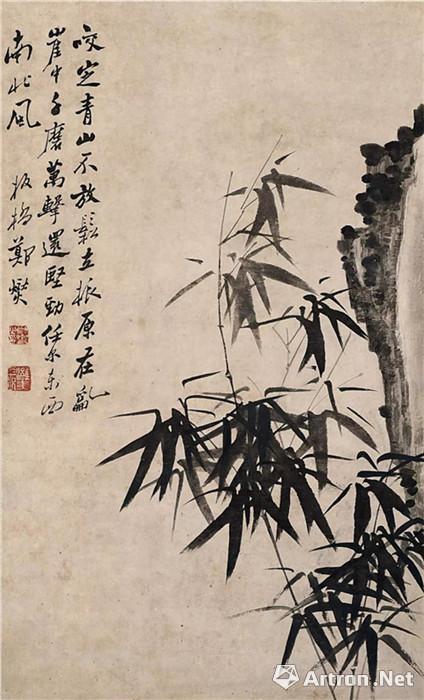 咬定青山不放鬆立根原在亂
崖中千磨萬擊還堅勁任尔東西
南北風 板橋鄭燮
Artron.Net